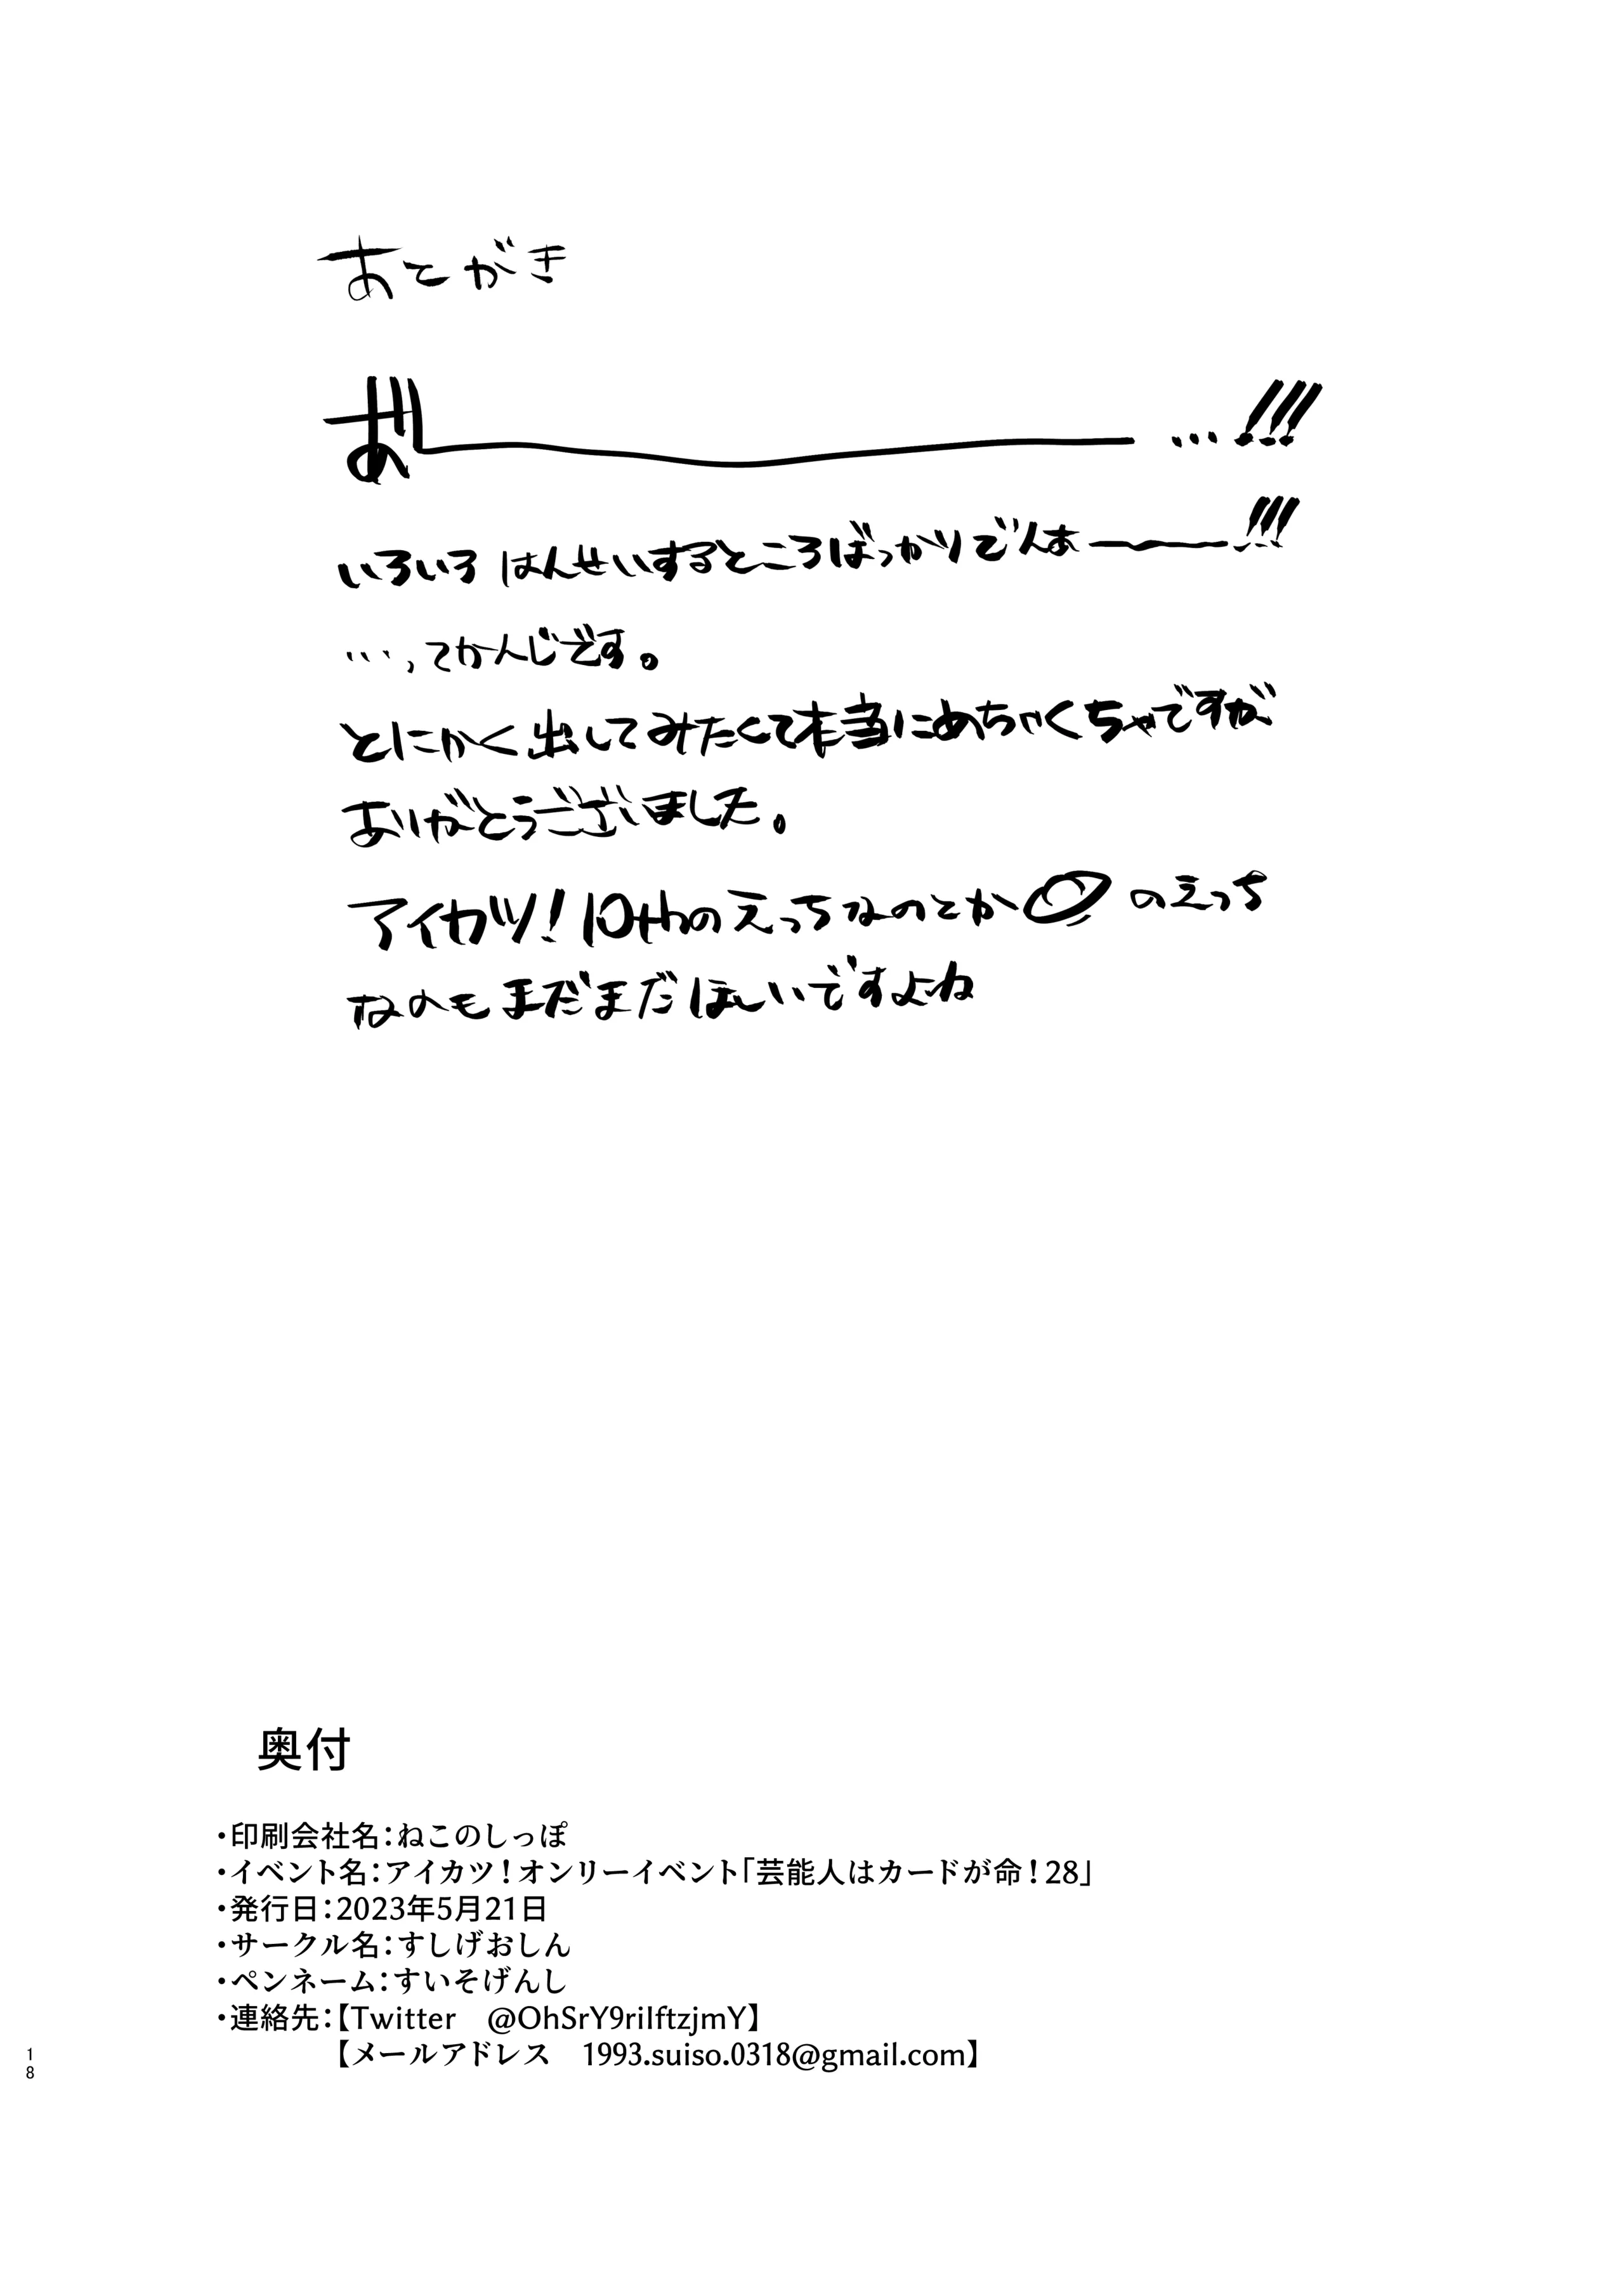 あとがき
あ゛ーーー…!!!
いろいろはんせいするところばっかりでんあ゛ーーー!!!
…ってかんじです。
とにかく出してみたくて本当にめちゃくちゃですが、
ありがとうございました。
アイカツ!10thのえっちなのとか のえっち
なのもまだまだほしいですよね
奥付
・印刷会社名:ねこのしっぽ
・イベント名:アイカツ!オンリーイベント「芸能人はカードが命!28」
・発行日:2023年5月21日
・サークル名:すしげおしん
・ペンネーム:すいそげんし
・連絡先:【Twitter @OhSrY9rilftzjmY】
【メールアドレス 1993.suiso.0318@gmail.com】
18